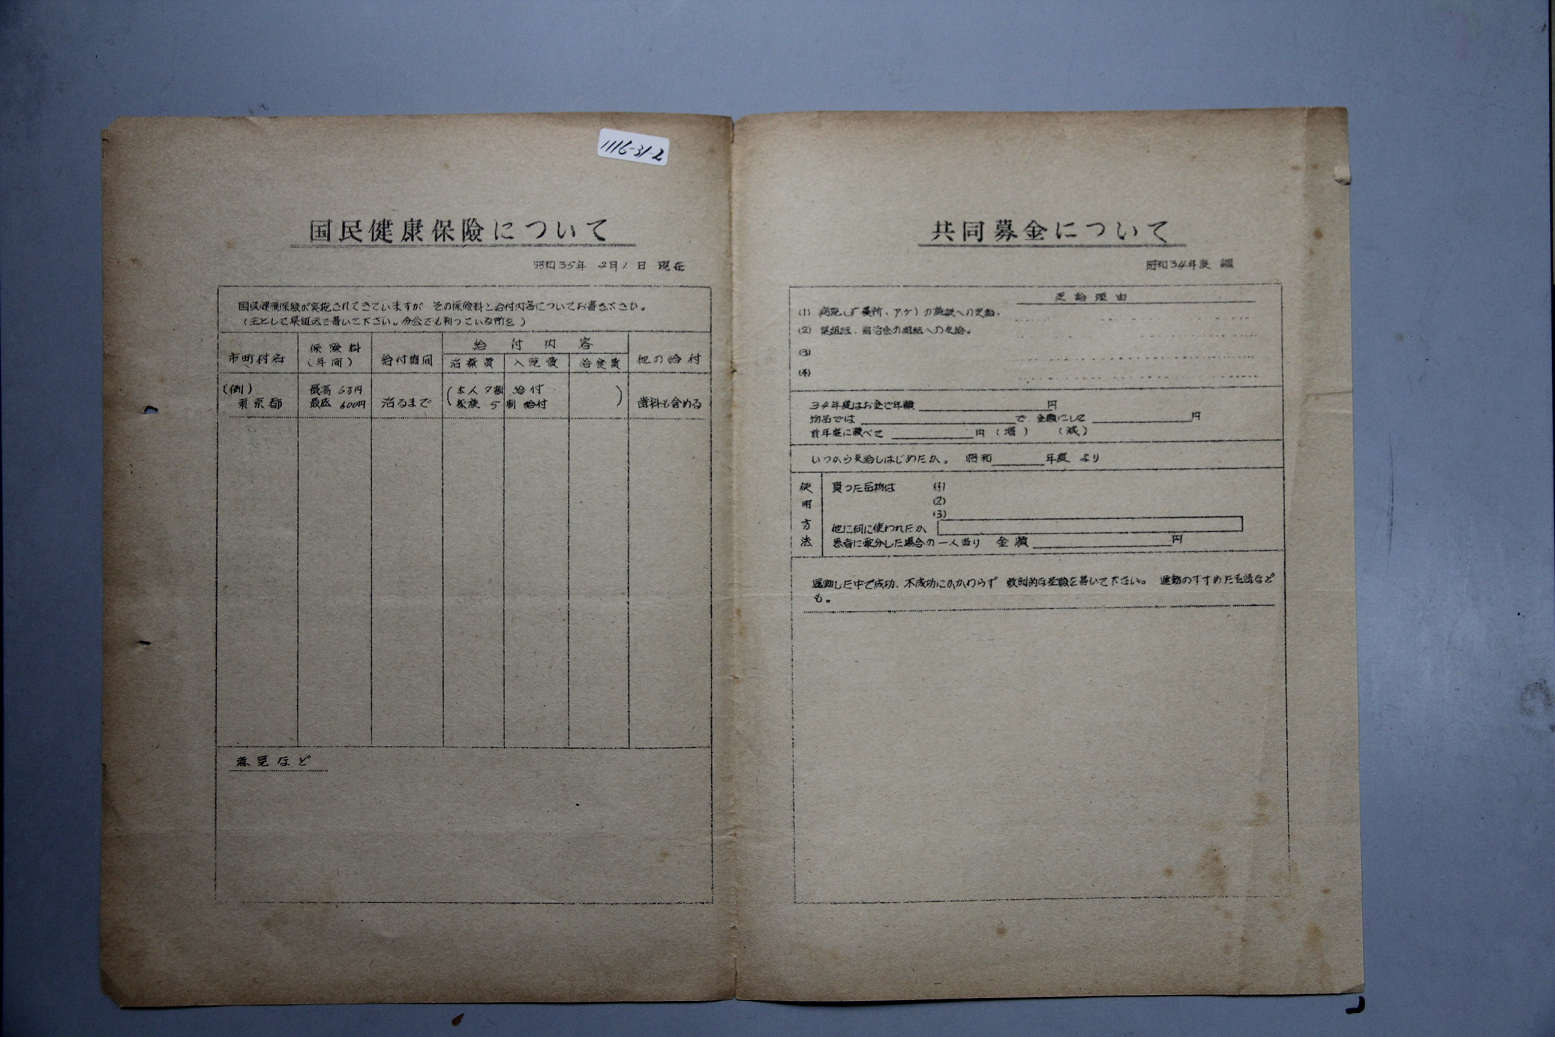 1116-31-2
国民健康保険について
昭和35年 2月1日 現在
国民健康保険が実施されてきていますが その保険料と給付内容についてお書き下さい。
(主として県組又で書いて下さい。分会でも判っている所を)
市町村名 保険料(年間) 給付期間 給付内容 他の給付
治療費 入院費 給食費
(例) 東京都 最高 最低 600円 治るまで (本人 7割 給付 家族 5割 給付) 歯科も含める
意見など
共同募金について
昭和34年度 調
支給理由
(1) 病院(療養所、アケ)の施設への支給。
(2) 県組織、自治会の組織への支給。
(3)
(4)
34年度はお金で年額 円
物品では で 金額にして 円
前年度に較べて 円 (増) (減)
いつから支給しはじめたか。 昭和 年度 より
使用方法
買った品物は (1)
(2)
(3)
他に何に使われたか
患者に配分した場合の一人当り 金額 円
運動した中で成功、不成功にかかわらず 教訓的な経験を書いて下さい。 運動のすすめ方 など
も。